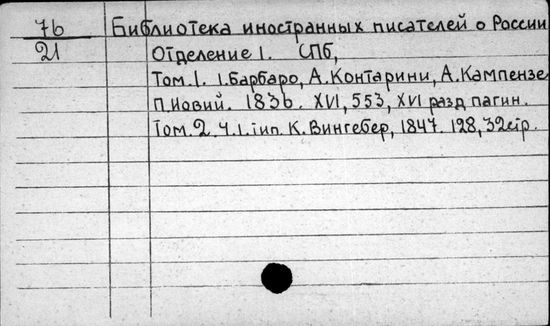 76 Библиотека иностранных писателей о России
21 Отделение 1. СПб,
Том. 1. 1. Барбаро, А. Контарини, А. Кампензе
П. Иовий. 1836. XVI, 553, XVI разд пагин.
Том. 2. Ч. 1. тип. К. Вингебер, 1847. 128, 32 стр.